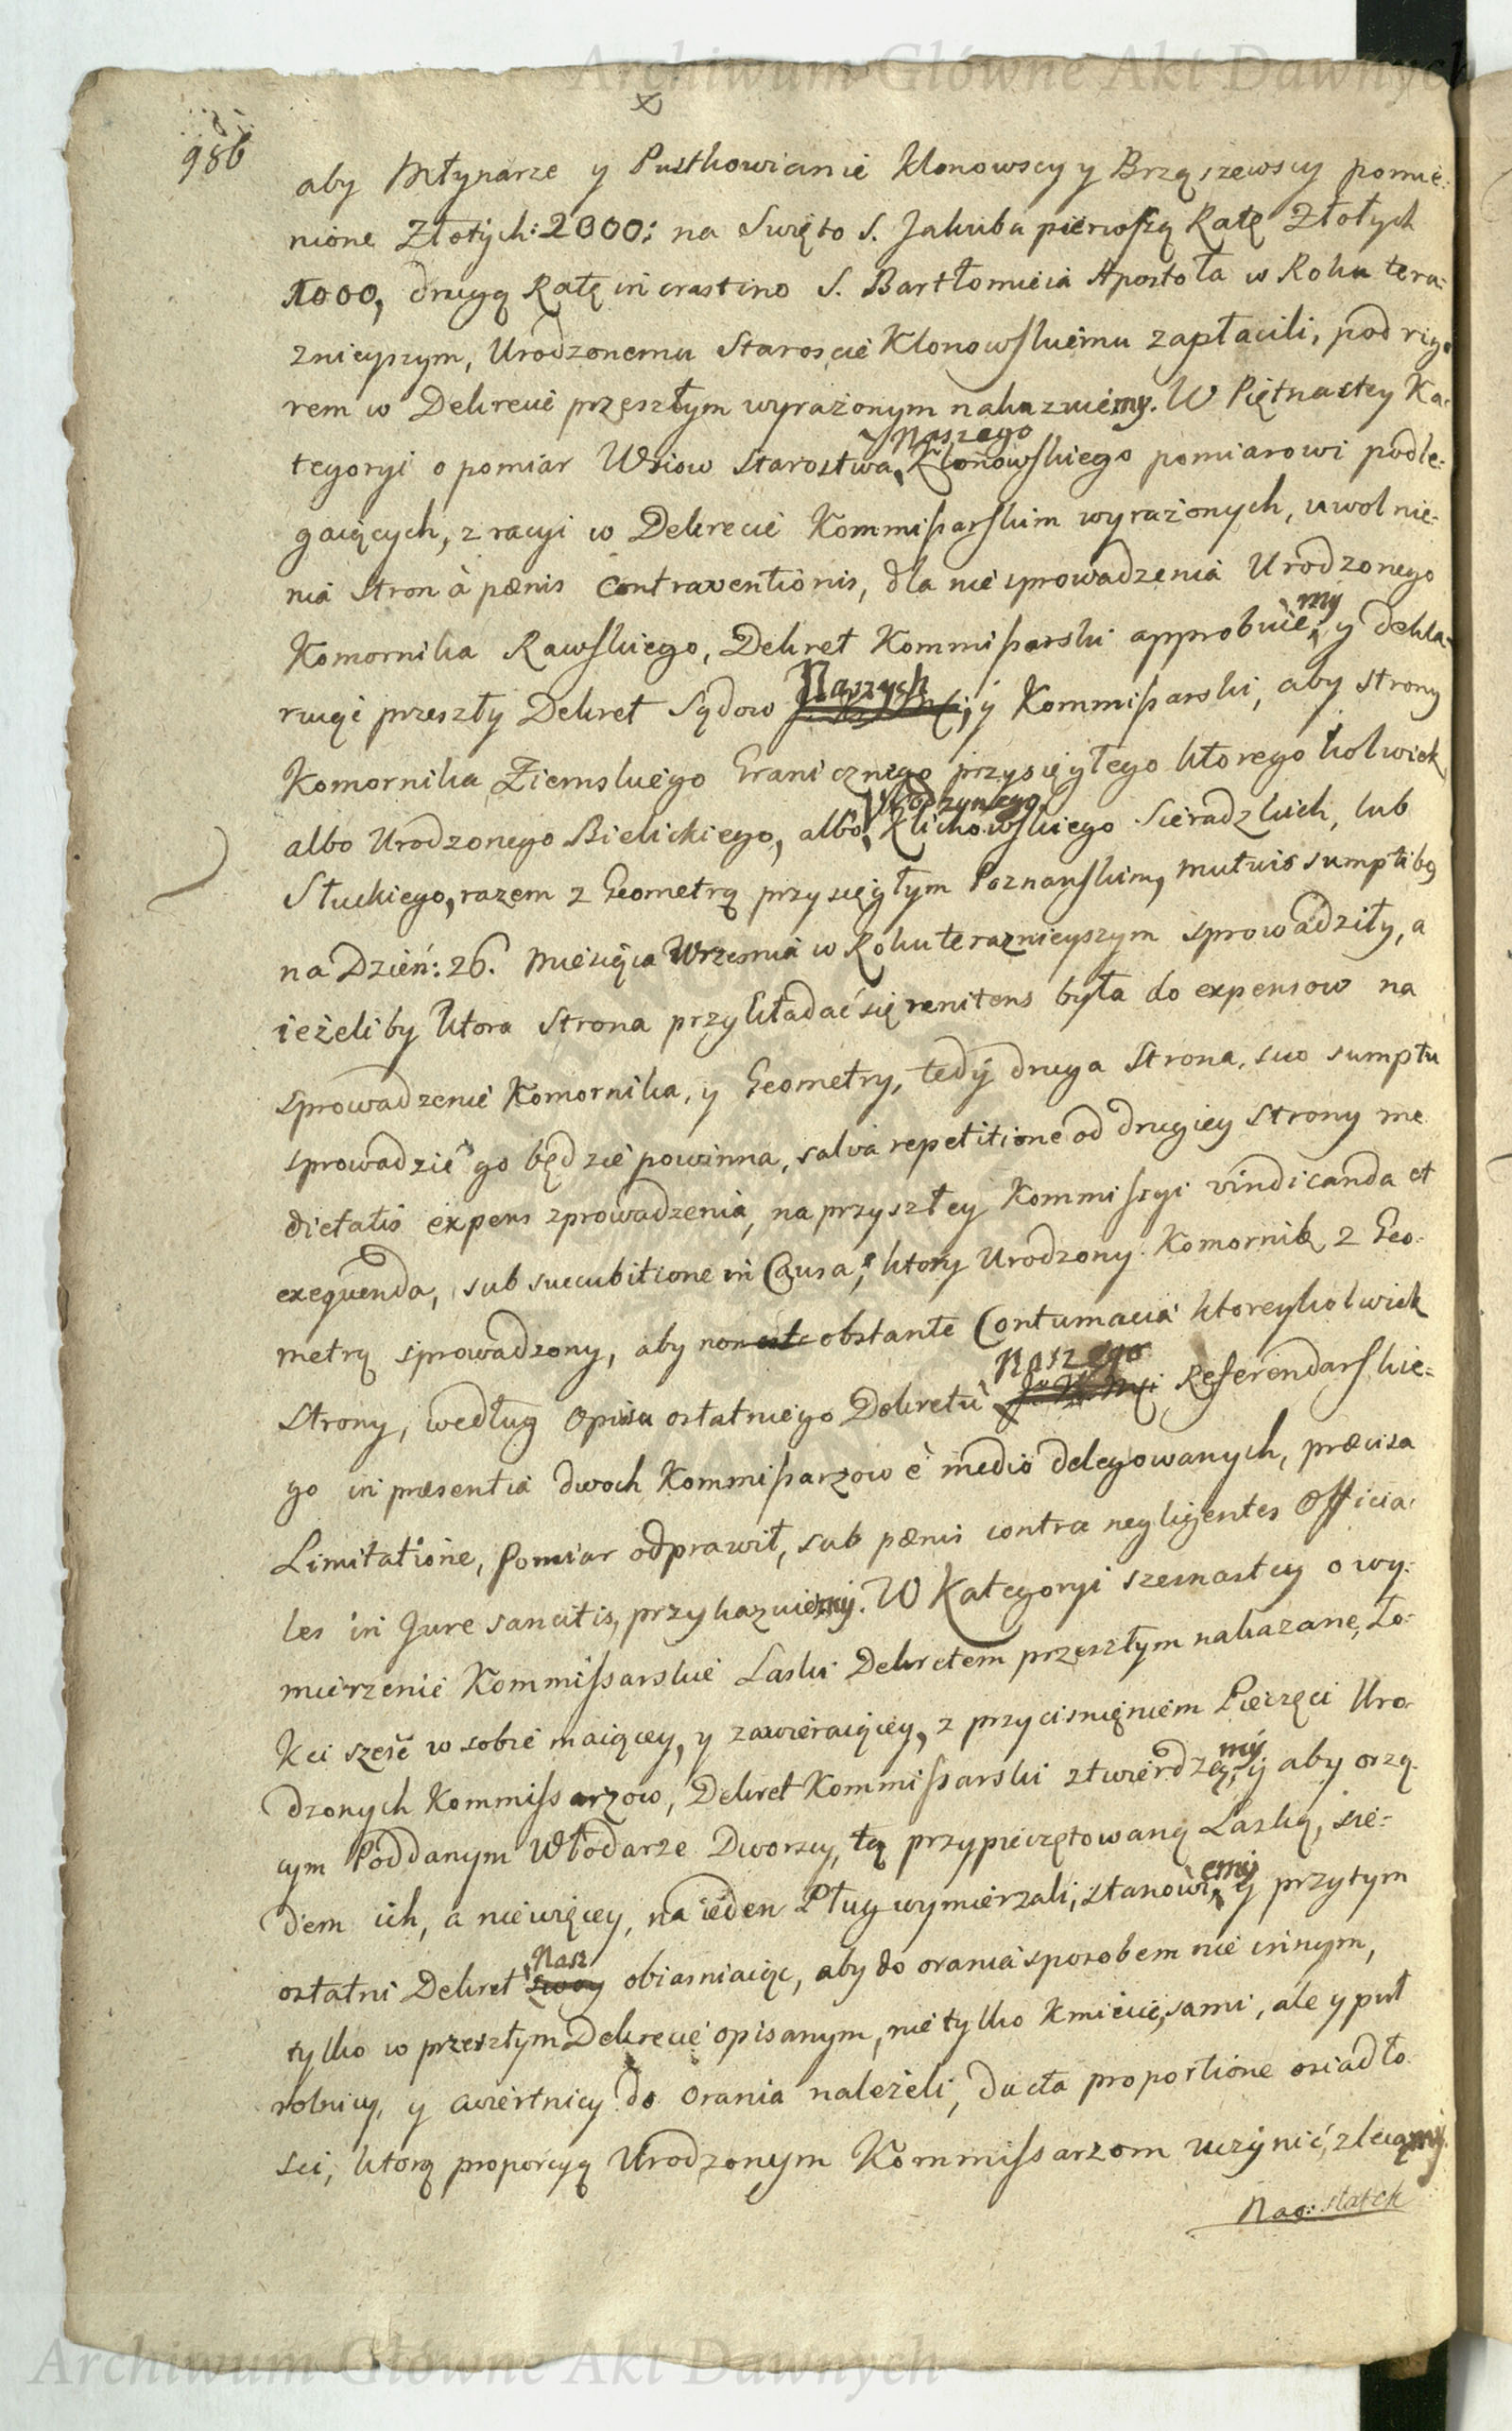 Archiwum Główne Akt Dawnych
986
aby Młynarze y Pustkowianie Klonowscy y Brząszewscy pomie:
nione Złotych: 2000: na Swięto S. Jakuba pierwszą Ratę Złotych
1000, drugą Ratę in crastino S. Bartłomieia Apostoła w Roku tera:
znieyszym, Urodzonemu Staroscie Klonowskiemu zapłacili, pod rigo
rem w Dekrecie przeszłym wyrażonym nakazuiemy. W Piętnastey Ka:
tegoryi o pomiar Wsiow Starostwa Naszego Klonowskiego pomiarowi podle:
gaiących, z racyi w Dekrecie Kommissarskim wyrażonych, uwolnie:
nia stron à pœnis contraventionis, dla nie sprowadzenia Urodzonego
Komornika Rawskiego, Dekret Kommissarski approbuiemy y dekla:
ruiąc przeszły Dekret Sądow Naszych y Kommissarski, aby strony
Komornika Ziemskiego Granicznego przysięgłego ktorego kolwiek
albo Urodzonego Bielickiego, albo Urodzonego Klichowskiego Sieradzkich, lub
Słuckiego, razem z Geometrą przysięgłym Poznanskim, mutuis sumptibus
na Dzień: 26. Miesiąca Wrzesnia w Roku teraznieyszym sprowadziły, a
ieżeliby ktora Strona przykładać się renitens była do expensow na
sprowadzenie Komornika, y Geometry, tedy druga Strona, suo sumptu
sprowadzić go będzie powinna, salva repetitione od drugiey strony me
dietatis expens zprowadzenia, na przyszłey Kommissyi vindicanda et
exequenda, sub succubitione in Causa, ktory Urodzony Komornik z Geo:
metrą sprowadzony, aby non obstante Contumacia ktoreykolwiek
Strony, według Opisu ostatniego Dekretu Naszego Referendarskie:
go in præsentia dwoch Kommissarzow è medio delegowanych, præcisa
Limitatione, Pomiar odprawił, sub pœnis contra negligentes Officia:
les in Jure sancitis, przykazuiemy. W Kategoryi szesnastey o wy:
mierzenie Kommissarskie Laski Dekretem przeszłym nakazane, Ło:
kci sześć w sobie maiącey, y zawieraiącey, z przycisnięniem Pieczęci Uro:
dzonych Kommissarzow, Dekret Kommissarski ztwierdzamy, y aby orzą
cym Poddanym Włodarze Dworscy, tą przypieczętowaną Laską, sie:
dem ich, a niewięcey, na ieden Pług wymierzali, stanowiemy y przytym
ostatni Dekret Nasz obiasniaiąc, aby do orania sposobem nie innym,
tylko w przeszłym Dekrecie opisanym, nie tylko Kmiecie sami, ale y puł
rolnicy, y cwiertnicy do orania należeli, ducta proportione osiadło
sci, ktorą proporcyą Urodzonym Kommissarzom uczynić, zlecamy.
Na ostatek
Archiwum Główne Akt Dawnych